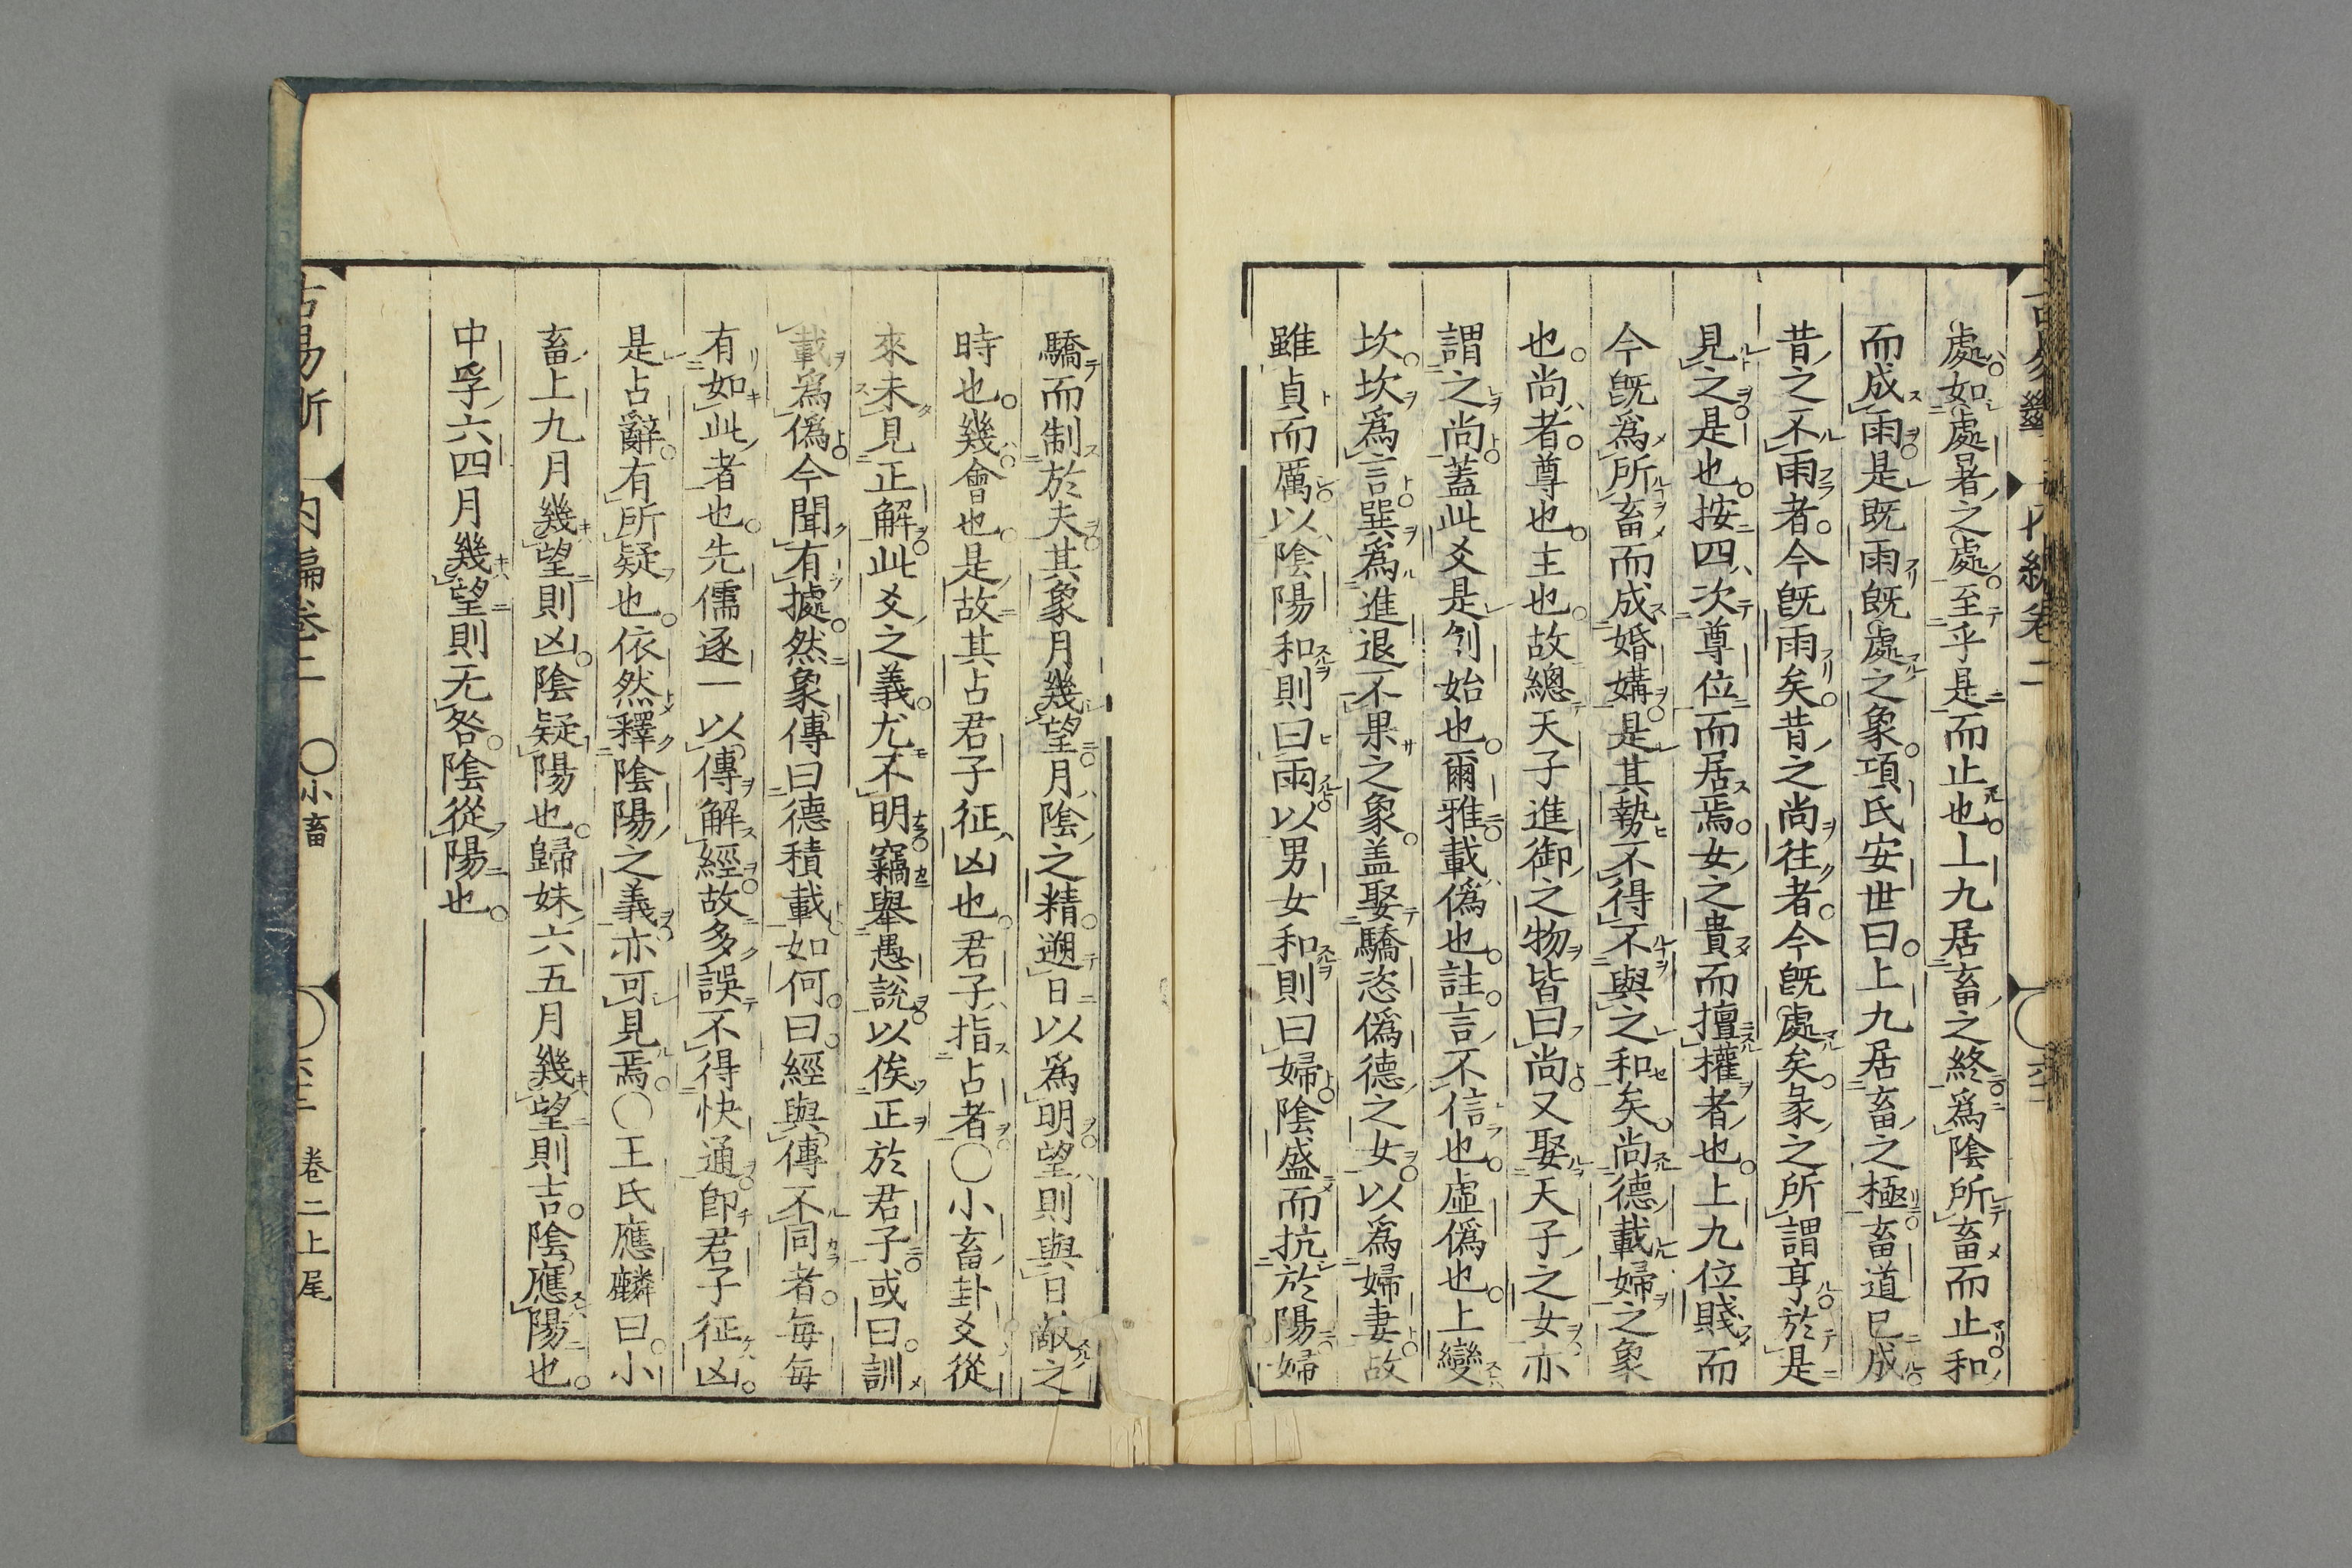 處如處暑之處至乎是而止也上九居畜之終爲陰所畜而止和
而成雨是既雨既處之象項氏安世曰上九居畜之極畜道已成
昔之不雨者今既雨矣昔之尚往者今既處矣彖之所謂亨於是
見之是也按四次尊位而居焉女之貴而擅權者也上九位賤而
今既爲所畜而成婚媾是其勢不得不與之和矣尚德載婦之象
也尚者尊也主也故總天子進御之物皆曰尚又娶天子之女亦
謂之尚蓋此爻是刱始也爾雅載偽也註言不信也虛偽也上變
坎坎爲言巽爲進退不果之象盖娶驕恣偽德之女以爲婦妻故
雖貞而厲以陰陽和則曰雨以男女和則曰婦陰盛而抗於陽婦
驕而制於夫其象月幾望月陰之精遡日以爲明望則與日敵之
時也幾會也是故其占君子征凶也君子指占者〇小畜卦爻從
來未見正解此爻之義尤不明竊舉愚說以俟正於君子或曰訓
載爲偽今聞有據然象傳曰德積載如何曰經與傳不同者每每
有如此者也先儒逐一以傳解經故多誤不得快通即君子征凶
是占辭有所疑也依然釋陰陽之義亦可見焉〇王氏應麟曰小
畜上九月幾望則凶陰疑陽也歸妹六五月幾望則吉陰應陽也
中孚六四月幾望則无咎陰從陽也
古易斷 內編卷二 〇小畜 卷二上尾